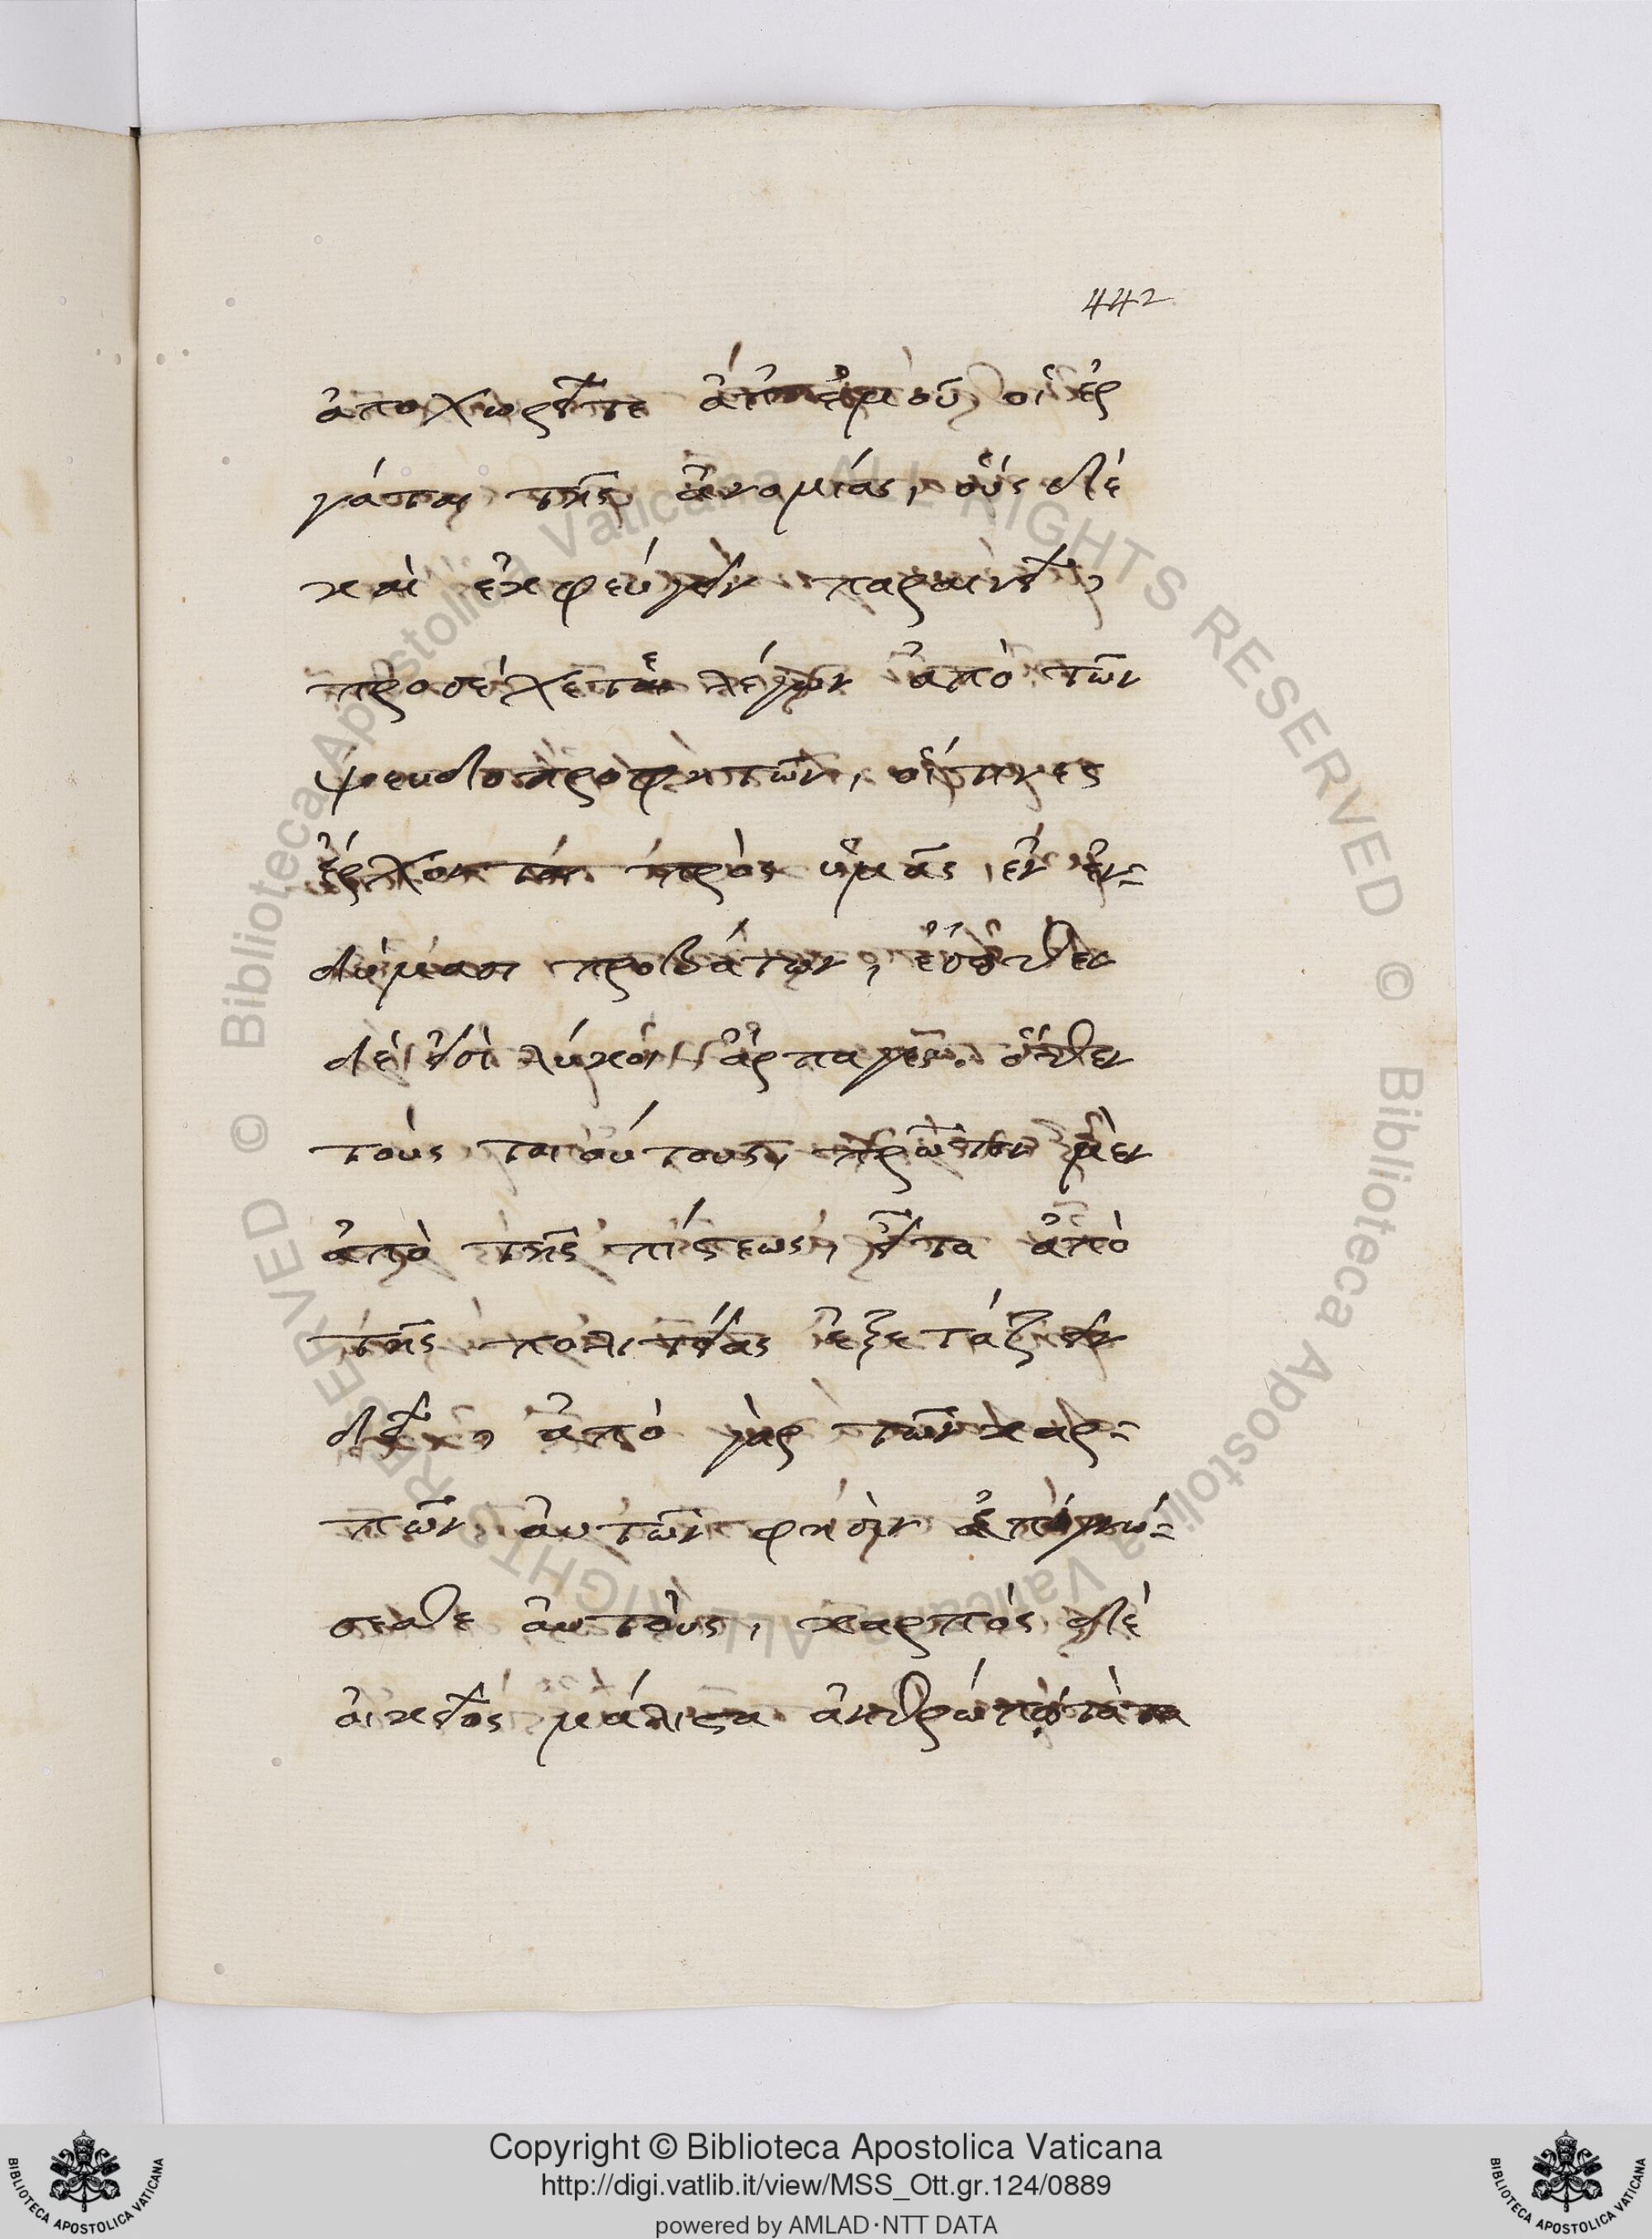 442
ἀποχωρεῖτε ἀπ' ἐμοῦ οἱ ἐρ
γάται τῆς ἀνομίας, οὓς δὲ
καὶ ἐκφεύγειν παραινεῖ,
προσέχετε λέγων ἀπὸ τῶν
ψευδοπροφητῶν, οἵτινες
ἔρχονται πρὸς ὑμᾶς ἐν ἐν=
δύμασι προβάτων, ἔσωθεν
δέ εἰσι λύκοι ἅρπαγες. ὅθεν
τοὺς τοιούτους, πρῶτον μὲν
ἀπὸ τῆς πίστεως, εἶτα ἀπὸ
τῆς πολιτείας ἐξετάζειν
δεῖ, ἀπὸ γὰρ τῶν καρ=
πῶν αὐτῶν φησὶν ἐπιγνώ=
σεσθε αὐτούς, καρπὸς δὲ
οἰκεῖος μάλιστα
Copyright © Biblioteca Apostolica Vaticana
http://digi.vatlib.it/view/MSS_Ott.gr.124/0889
powered by AMLAD·NTT DATA
BIBLIOTECA APOSTOLICA VATICANA
BIBLIOTECA APOSTOLICA VATICANA
© Biblioteca Apostolica Vaticana ALL RIGHTS RESERVED
© Biblioteca Apostolica Vaticana ALL RIGHTS RESERVED